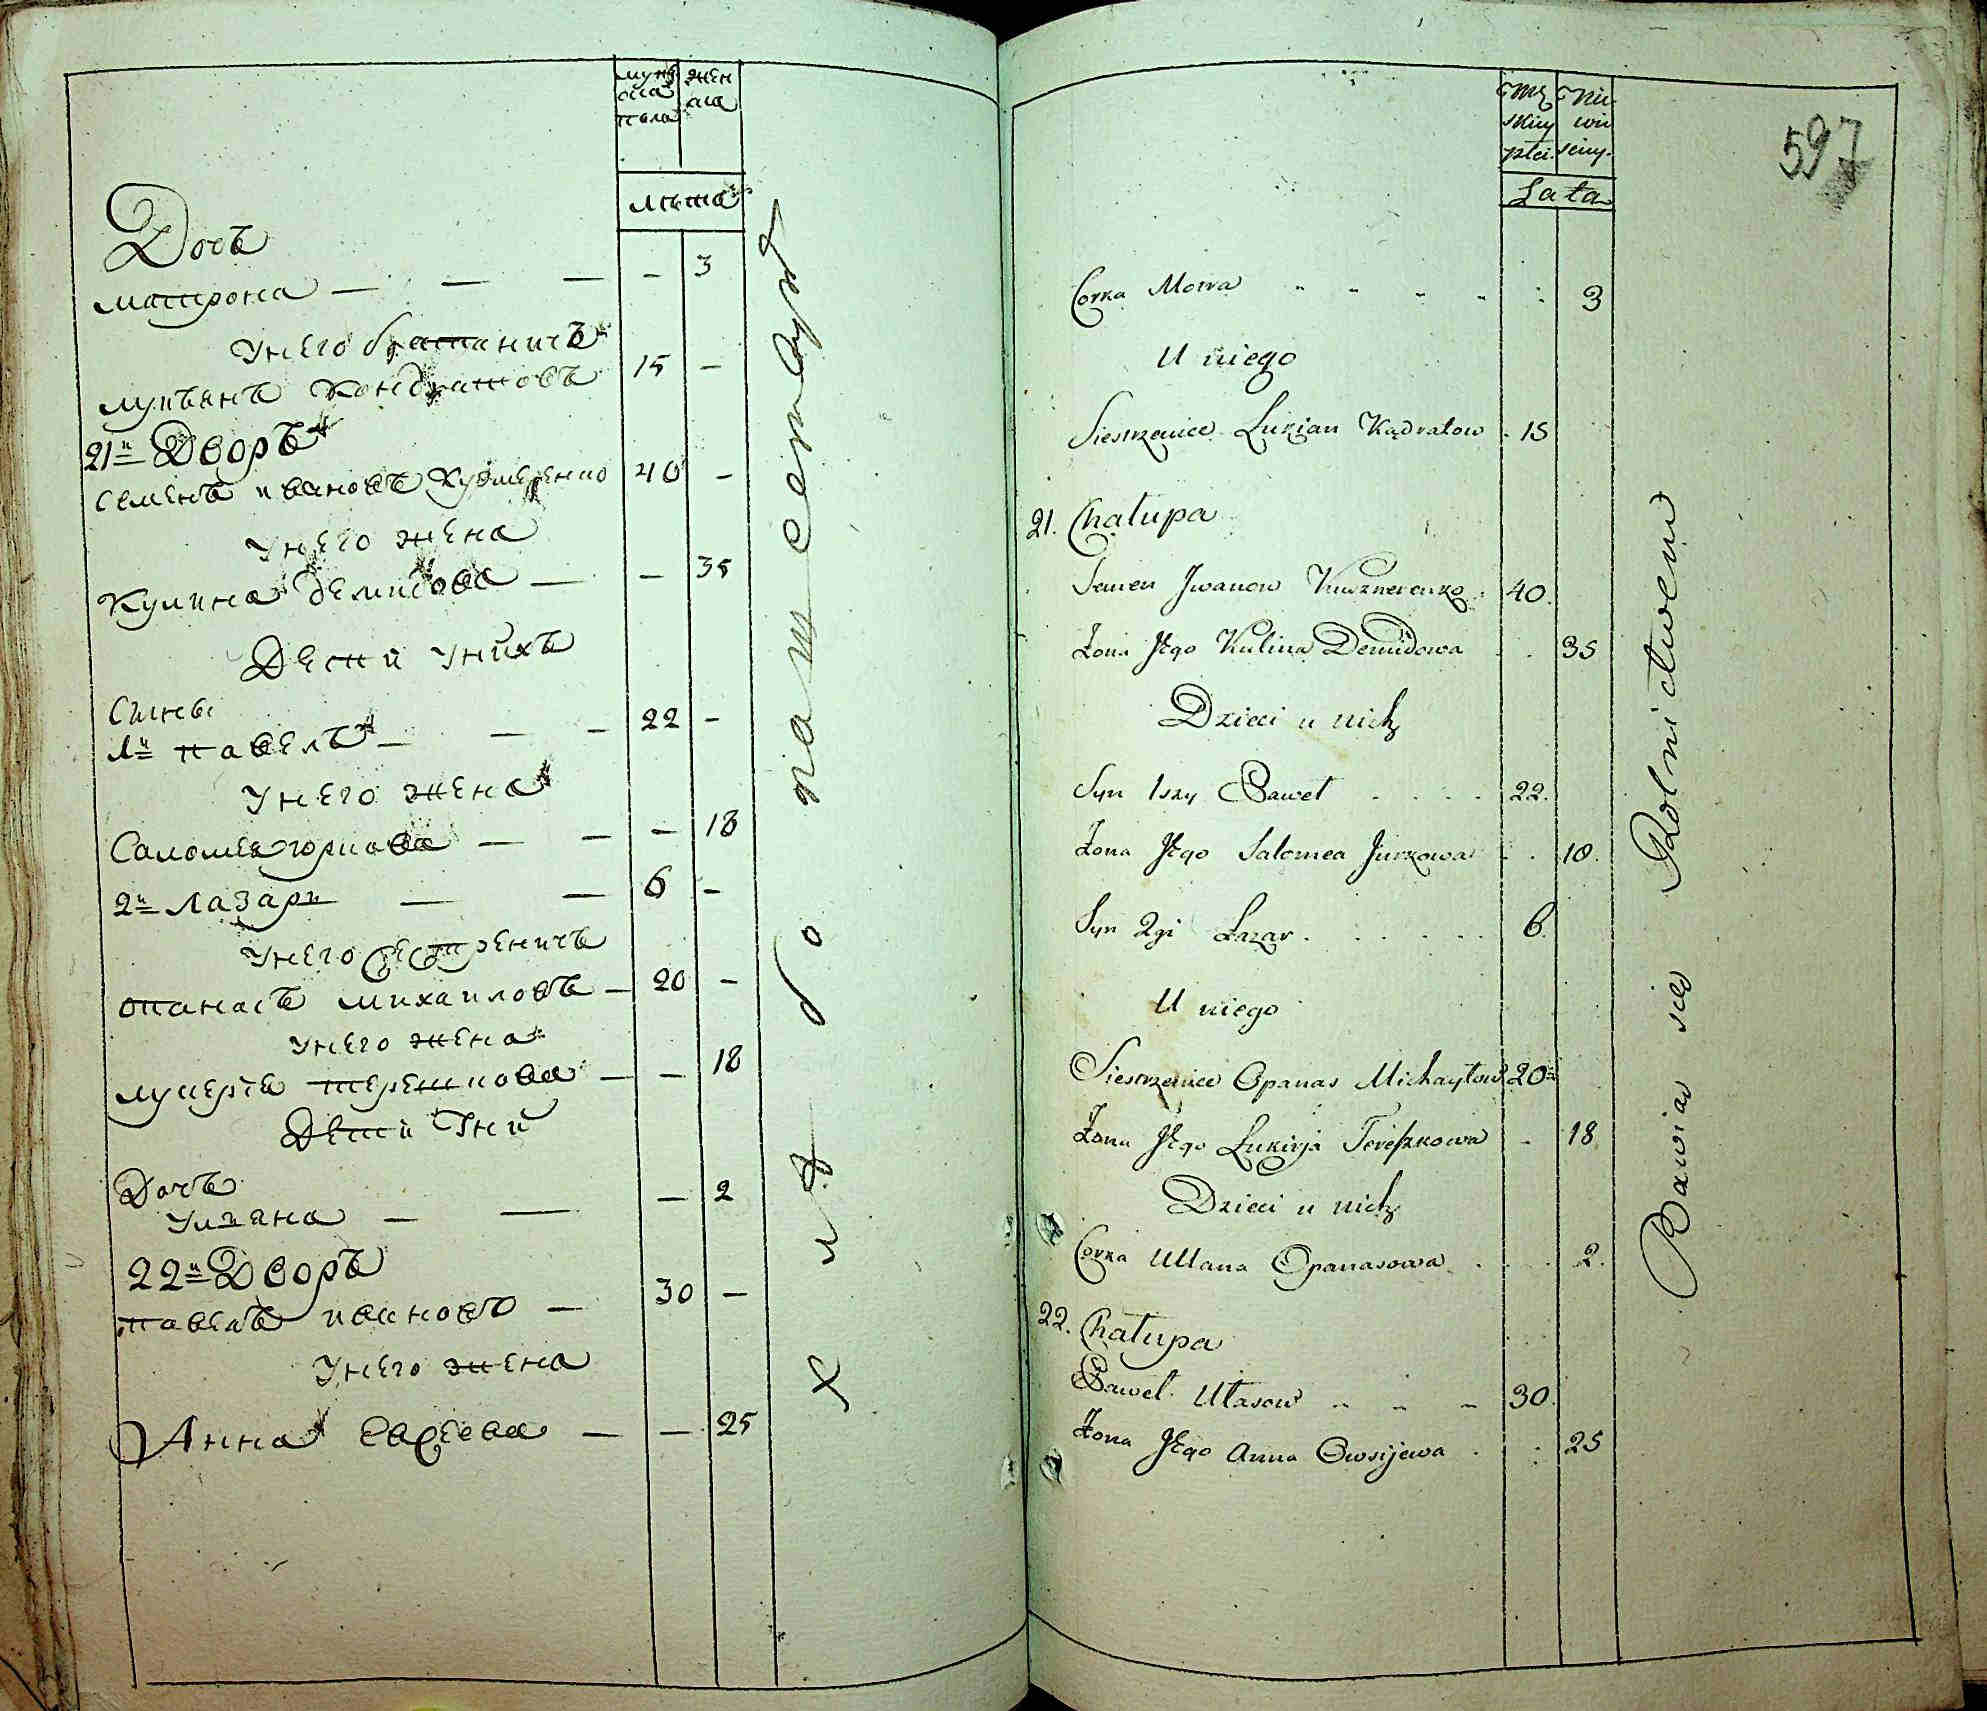 муже ска пола
женска
лѣта
Дочъ
матрона — — — — 3
Унего братаничъ
лукъянъ Кондратовъ 15 —
21й Дворъ
семенъ ивановъ Кузмеренко 40 —
Унего жена
Кулина демидова — — 35
Дети Унихъ
Сыны
1й павелъ — — — 22 —
Унего жена
Саломея юркова — — — 18
2й лазарь — — 6 —
Унего сестреничъ
опанасъ михаиловъ — 20 —
Унего жена
лукеря терешкова — — 18
Дети Уних
Дочъ
Уляна — — — 2
22й Дворъ
павелъ ивановъ — 30 —
Унего жена
Анна Евсеева — — 25
хлѣбопашествуютъ
597
Męz Nie
skiey wie
płci. sciey.
Lata
Corka Motra 3
U niego
Siestrzeniec Łukian Kądratow 15
21. Chałupa
Semen Jwanow Kuzmerenko 40.
Żona Jego Kulina Demidowa 35
Dzieci u nich
Syn 1szy Paweł 22.
Żona Jego Salomea Jurkowa 18.
Syn 2gi Łazar 6.
U niego
Siestrzeniec Opanas Michayłow 20
Żona Jego Łukirja Tereszkowa 18
Dzieci u nich
Corka Ullana Opanasowa 2.
22. Chałupa
Paweł Ułasow 30.
Żona Jego Anna Owsijewa 25
Bawią się Rolnictwem